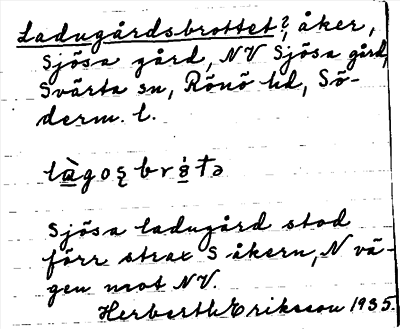 Ladugårdsbrottet?, åker,
Sjösa gård, NV Sjösa gård,
Svärta sn, Rönö hd, Sö-
derm. l.
Sjösa ladugård stod
förr strax S åkern, N vä-
gen mot NV.
Herberth Eriksson 1935.